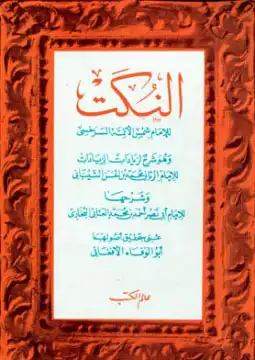 النكت
للإمام شمس الأئمة السرخسي
وهو شرح لزيادات الزيادات
للإمام الرباني محمد بن الحسن الشيباني
وشرحها
للإمام أبي نصر أحمد بن محمد العتابي البخاري
عني بتحقيق أصولهما
أبو الوفاء الأفغاني
عالم الكتب